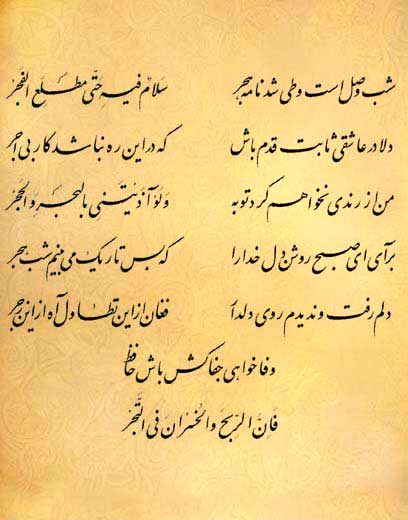 شب وصل است و طی شد نامه هجر سَلامٌ فیهِ حَتّی مَطلَعِ الفَجر
دلا در عاشقی ثابت قدم باش که در این ره نباشد کار بی اجر
من از رندی نخواهم کرد توبه وَلَو آذَیتَنی بِالهَجرِ وَالحَجر
برآی ای صبح روشن دل خدا را که بس تاریک می بینم شب هجر
دلم رفت و ندیدم روی دلدار فغان از این تطاول آه از این زجر
وفا خواهی جفاکش باش حافظ
فَاِنَّ الرِّبحَ وَالخُسرانَ فی التَّجر